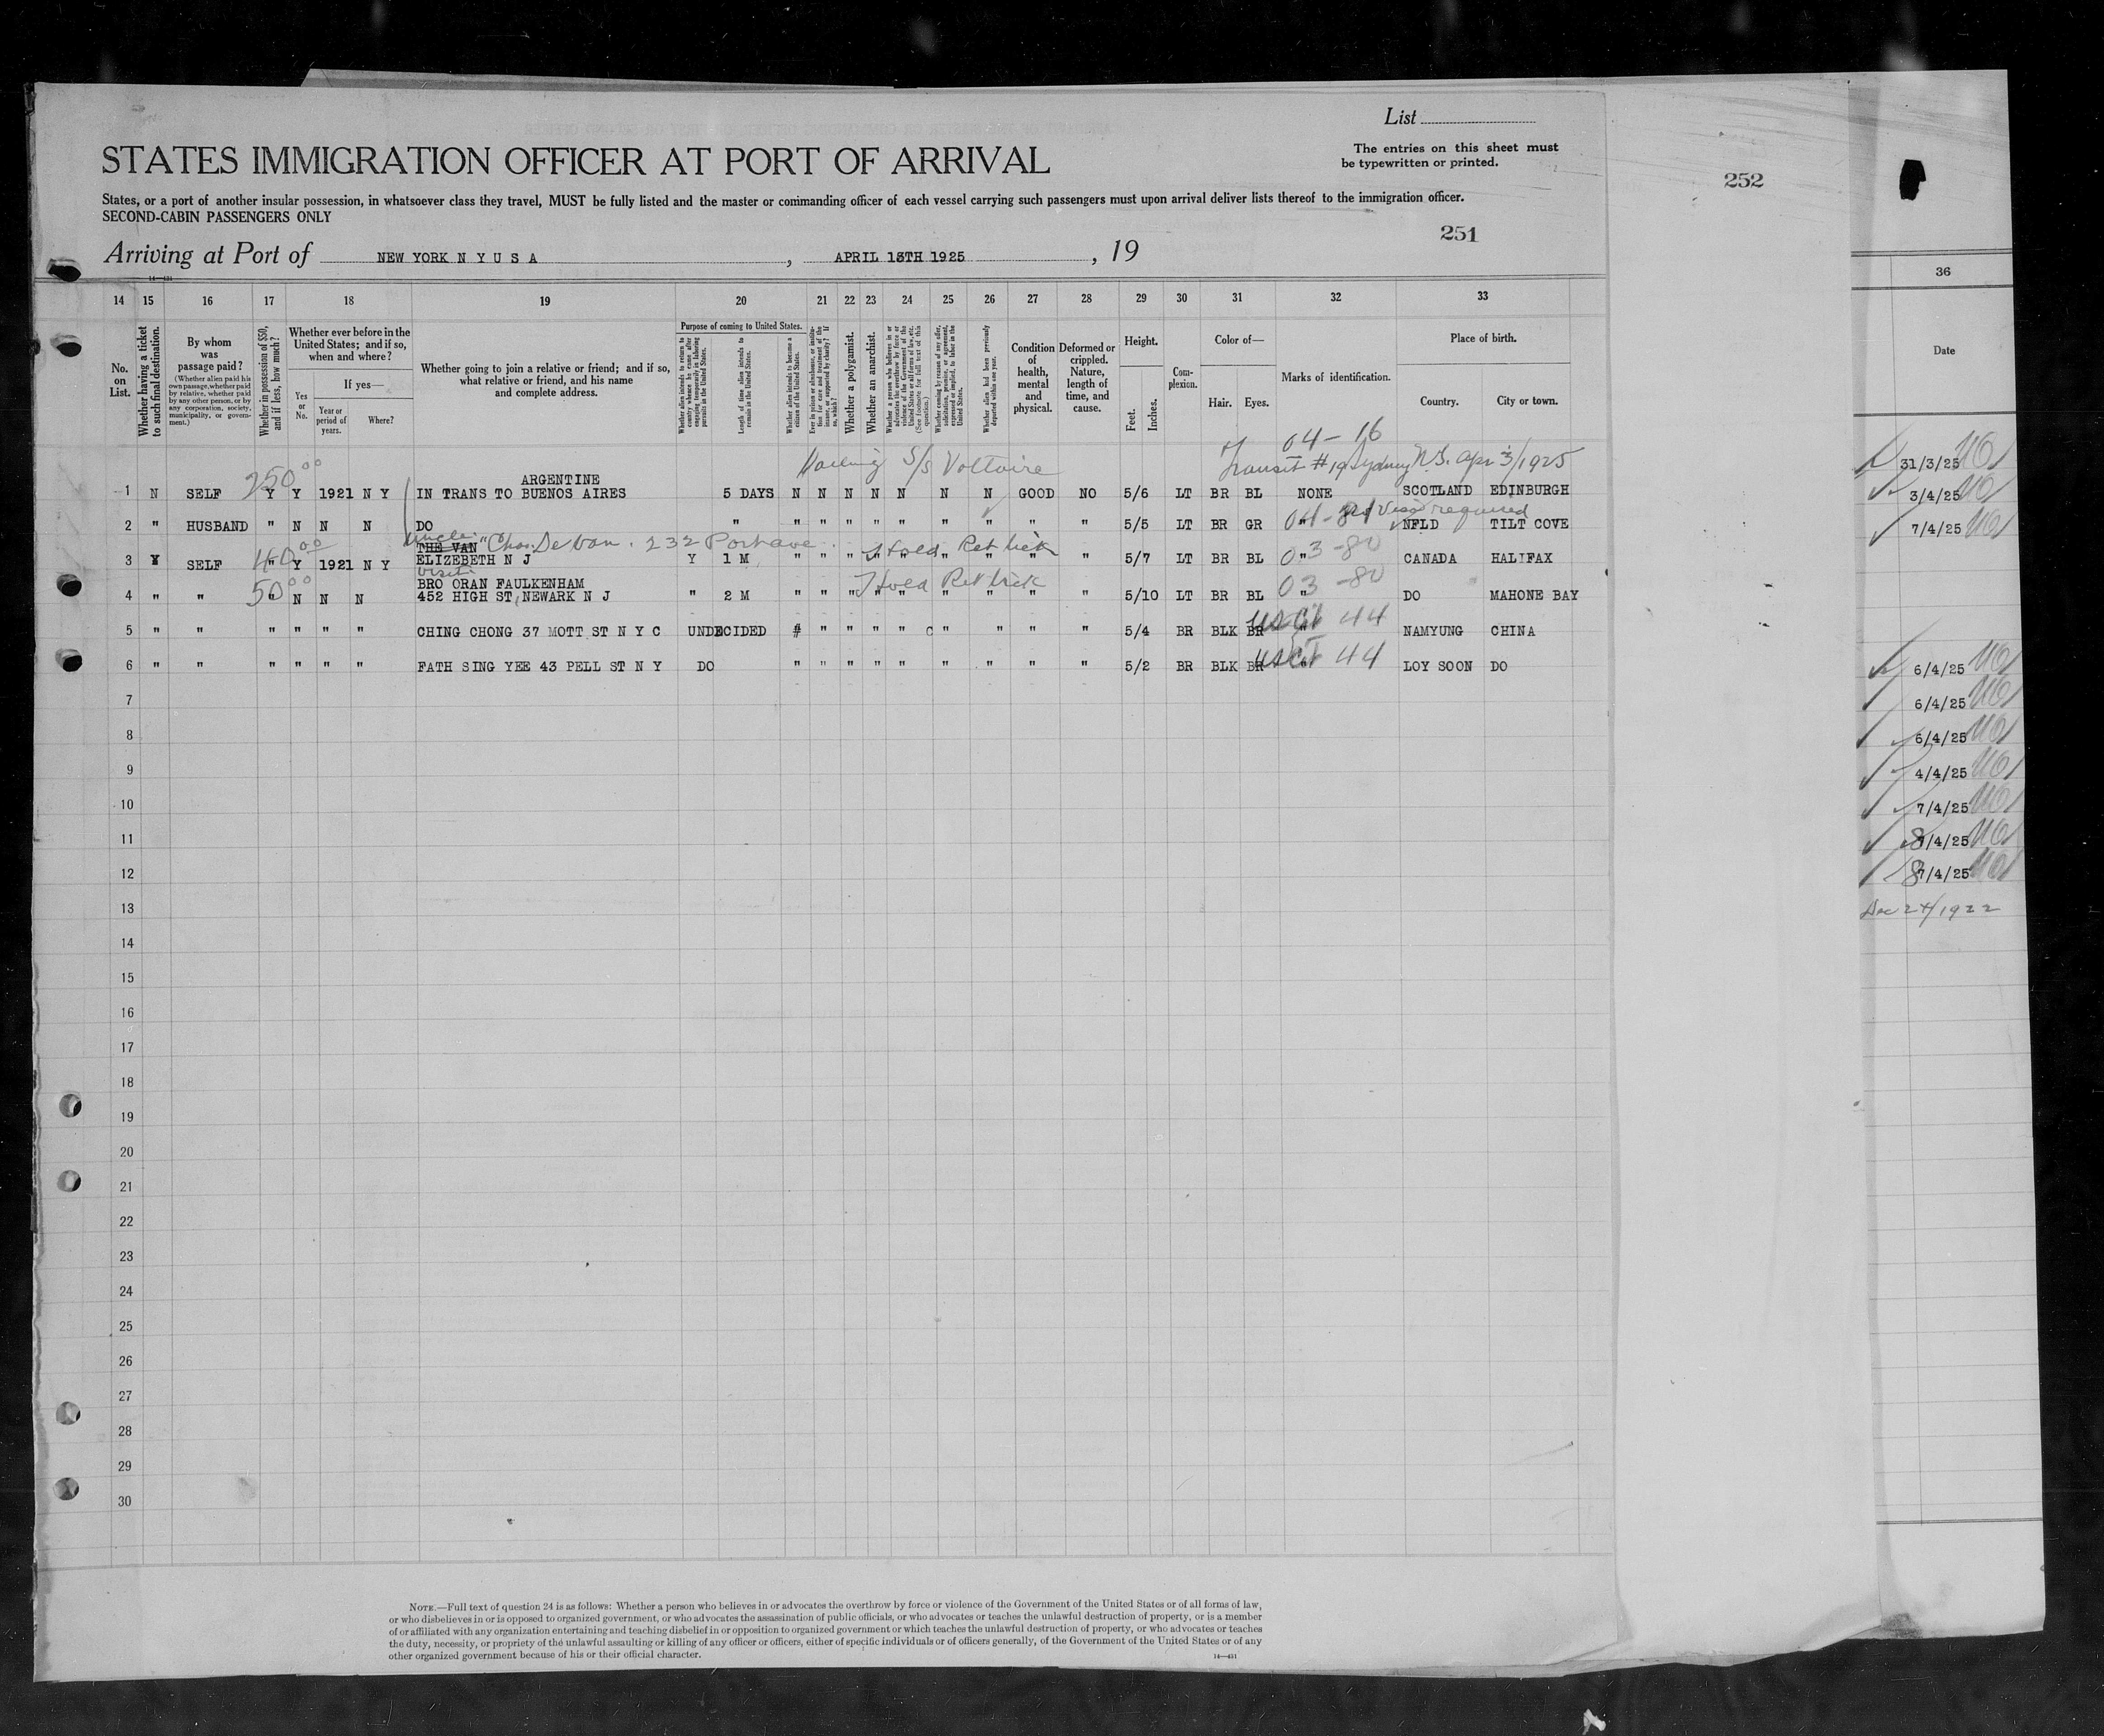 List
STATES IMMIGRATION OFFICER AT PORT OF ARRIVAL
The entries on this sheet must
be typewritten or printed.
252
States, or a port of another insular possession, in whatsoever class they travel, MUST be fully listed and the master or commanding officer of each vessel carrying such passengers must upon arrival deliver lists thereof to the immigration officer.
SECOND-CABIN PASSENGERS ONLY
251
Arriving at Port of NEW YORK N Y U S A , APRIL 13TH 1925 , 19
14—431
14 15 16 17 18 19 20 21 22 23 24 25 26 27 28 29 30 31 32 33 36
No. on List.
Whether having a ticket to such final destination.
By whom was passage paid?
(Whether alien paid his own passage, whether paid by relative, whether paid by any other person, or by any corporation, society, municipality, or government.)
Whether in possession of $50, and if less, how much?
Whether ever before in the United States; and if so, when and where?
Yes or No.
If yes—
Year or period of years.
Where?
Whether going to join a relative or friend; and if so, what relative or friend, and his name and complete address.
Purpose of coming to United States.
Whether alien intends to return to country whence he came after engaging temporarily in laboring pursuits in the United States.
Length of time alien intends to remain in the United States.
Whether alien intends to become a citizen of the United States.
Whether a polygamist.
Whether an anarchist.
Condition of health, mental and physical.
Deformed or crippled. Nature, length of time, and cause.
Height.
Feet. Inches.
Complexion.
Color of—
Hair. Eyes.
Marks of identification.
Place of birth.
Country. City or town.
Date
04-16
S/S Voltaire
Transit #19 Sydney N.S. Apr 3/1925
250 00
ARGENTINE
1 N SELF Y Y 1921 N Y IN TRANS TO BUENOS AIRES 5 DAYS N N N N N N N GOOD NO 5/6 LT BR BL NONE SCOTLAND EDINBURGH
Visa required
2 " HUSBAND " N N N DO " " " " " " " " " " 5/5 LT BR GR " NFLD TILT COVE
uncle Chas. De Van. 232 Port ave
THE VAN
40 00
03-80
3 Y SELF " Y 1921 N Y ELIZEBETH N J Y 1 M " " " " " " " " " 5/7 LT BR BL " CANADA HALIFAX
visit
50 00
03-80
BRO ORAN FAULKENHAM
4 " " " N N N 452 HIGH ST, NEWARK N J " 2 M " " " " " " " " " 5/10 LT BR BL " DO MAHONE BAY
44
5 " " " " " " CHING CHONG 37 MOTT ST N Y C UNDECIDED " " " " " " " " 5/4 BR BLK BR " NAMYUNG CHINA
44
6 " " " " " " FATH SING YEE 43 PELL ST N Y DO " " " " " " " " " 5/2 BR BLK BR " LOY SOON DO
7
8
9
10
11
12
13
14
15
16
17
18
19
20
21
22
23
24
25
26
27
28
29
30
31/3/25
3/4/25
7/4/25
6/4/25
6/4/25
6/4/25
4/4/25
7/4/25
8/4/25
8/4/25
Dec 24/1922
NOTE.—Full text of question 24 is as follows: Whether a person who believes in or advocates the overthrow by force or violence of the Government of the United States or of all forms of law,
or who disbelieves in or is opposed to organized government, or who advocates the assassination of public officials, or who advocates or teaches the unlawful destruction of property, or is a member
of or affiliated with any organization entertaining and teaching disbelief in or opposition to organized government or which teaches the unlawful destruction of property, or who advocates or teaches
the duty, necessity, or propriety of the unlawful assaulting or killing of any officer or officers, either of specific individuals or of officers generally, of the Government of the United States or of any
other organized government because of his or their official character.
14—431